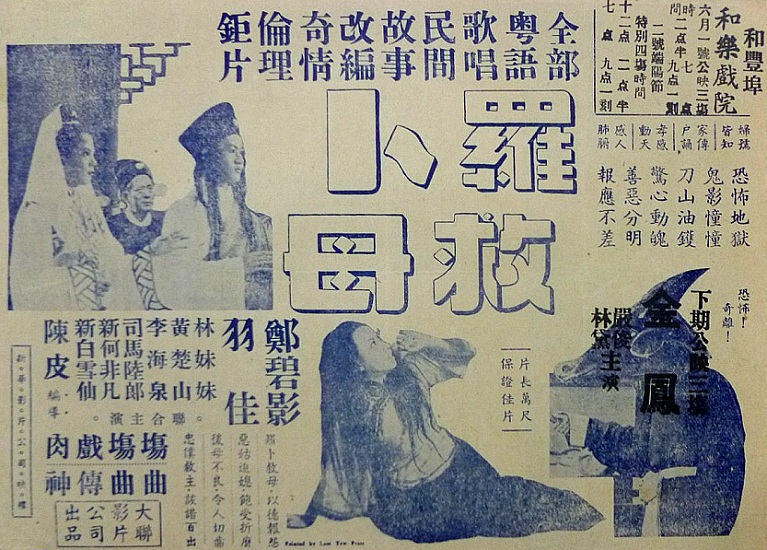 和豐埠
和樂戲院
六月一號公映三場
時間二點半七點九點一刻
一號端陽節
特別四場時間
十二點 二點半
七點 九點一刻
全部
粵語
歌唱
民間
故事
改編
奇情
倫理
鉅片
羅卜
救母
婦孺皆知
家傳户誦
孝感動天
感人肺腑
恐怖地獄
鬼影憧憧
刀山油鑊
驚心動魄
善惡分明
報應不差
恐怖!
奇離!
下期公映三場
金鳳
嚴俊
林黛
主演
片長萬尺
保證佳片
鄭碧影
羽佳
林妹妹。
黃楚山
李海泉
司馬陸郎
新何非凡
新白雪仙。
聯合主演
陳皮
編導
場場戲肉
曲曲傳神
羅卜救母,以德報怨
惡姑迫媳,飽受折磨
後母不良,令人切齒
忠僕救主,詼諧百出
大聯
影片
公司
出品
新華影片公司映權
Printed by Lam Yew Press